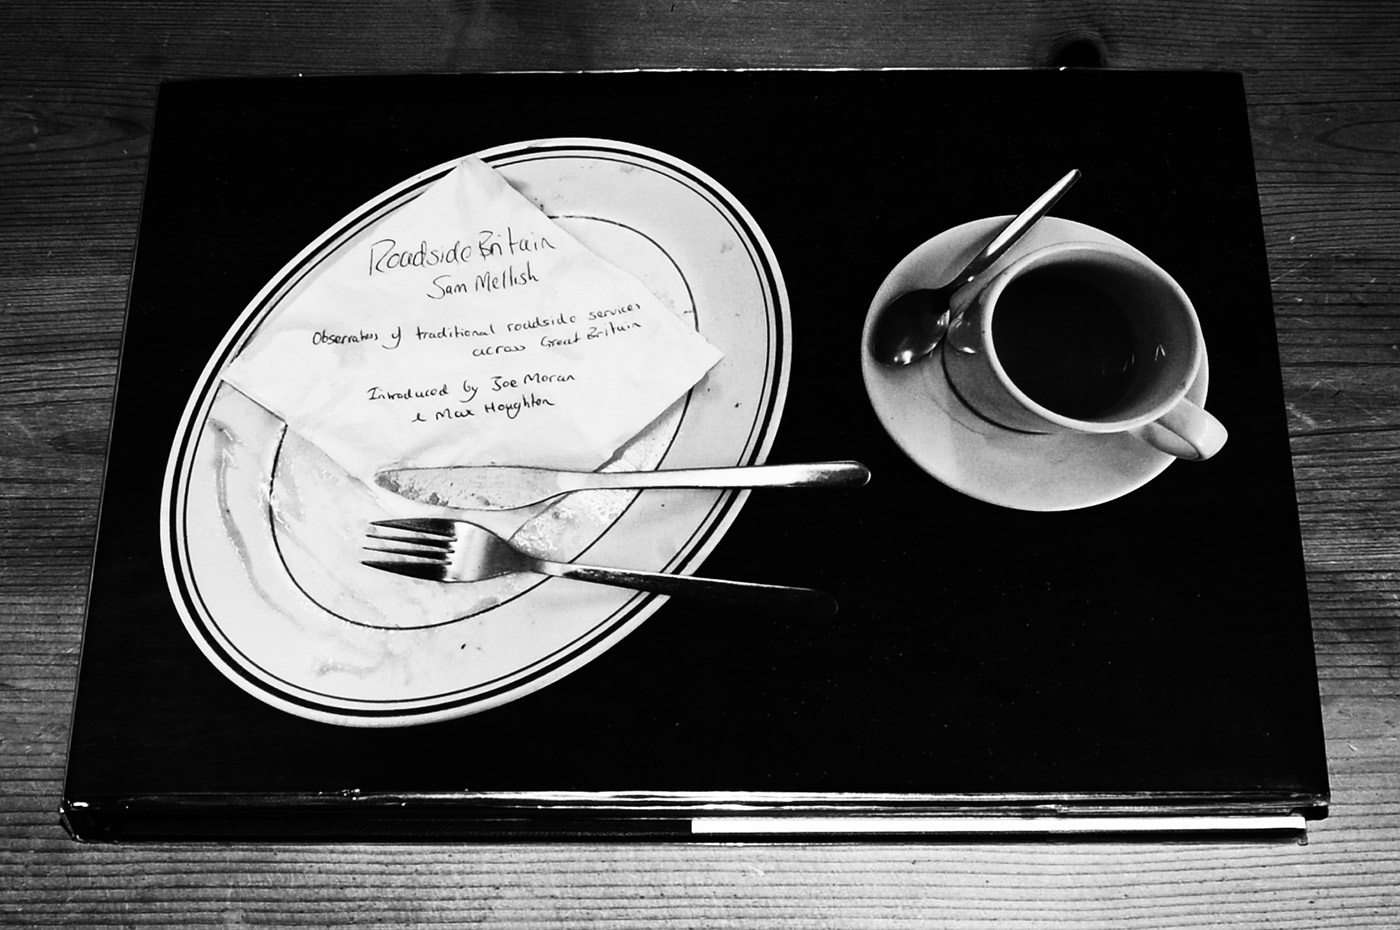 Roadside Britain
Sam Mellish
Observations of traditional roadside services
across Great Britain
Introduced by Joe Moran
& Max Houghton